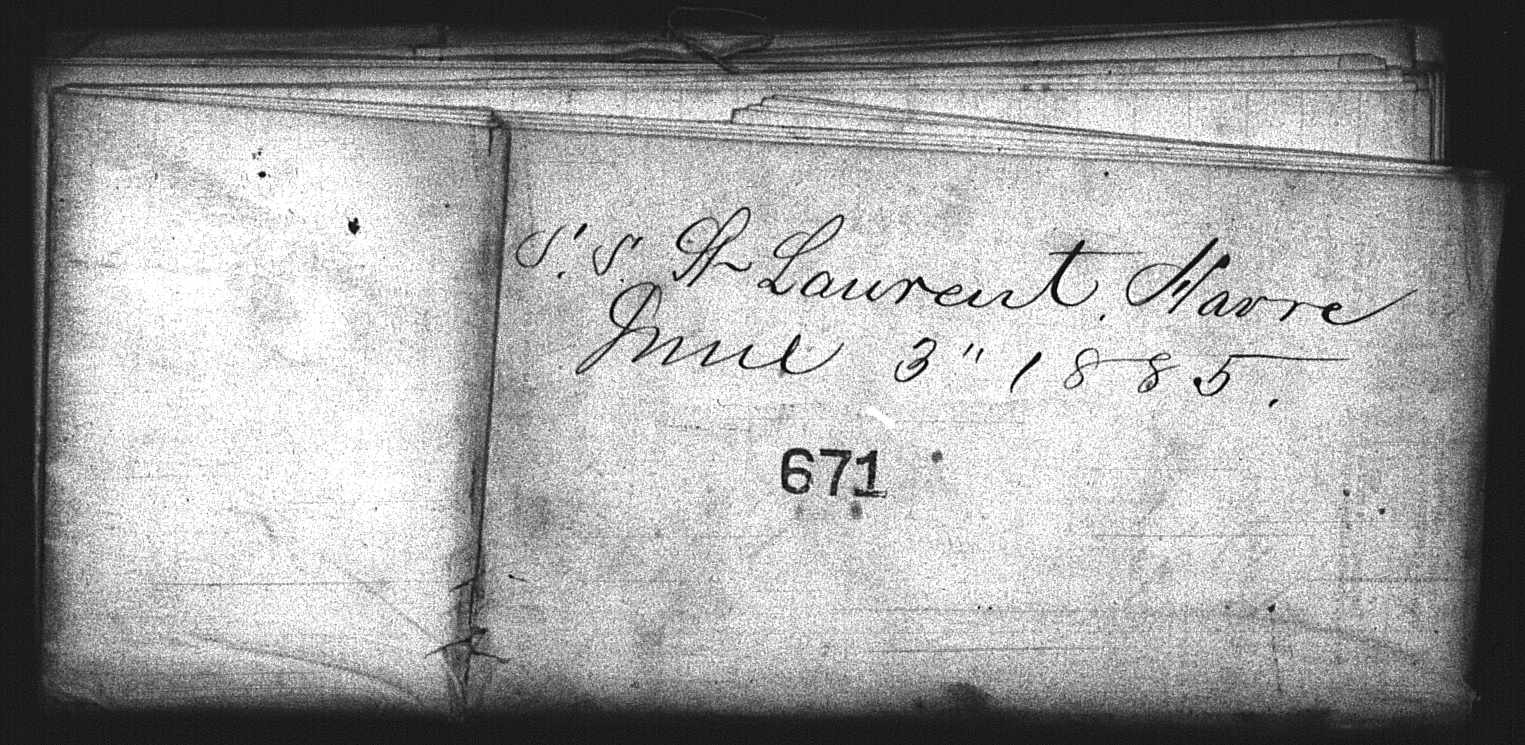 S.S. St Laurent. Havre
June 3" 1885.
671